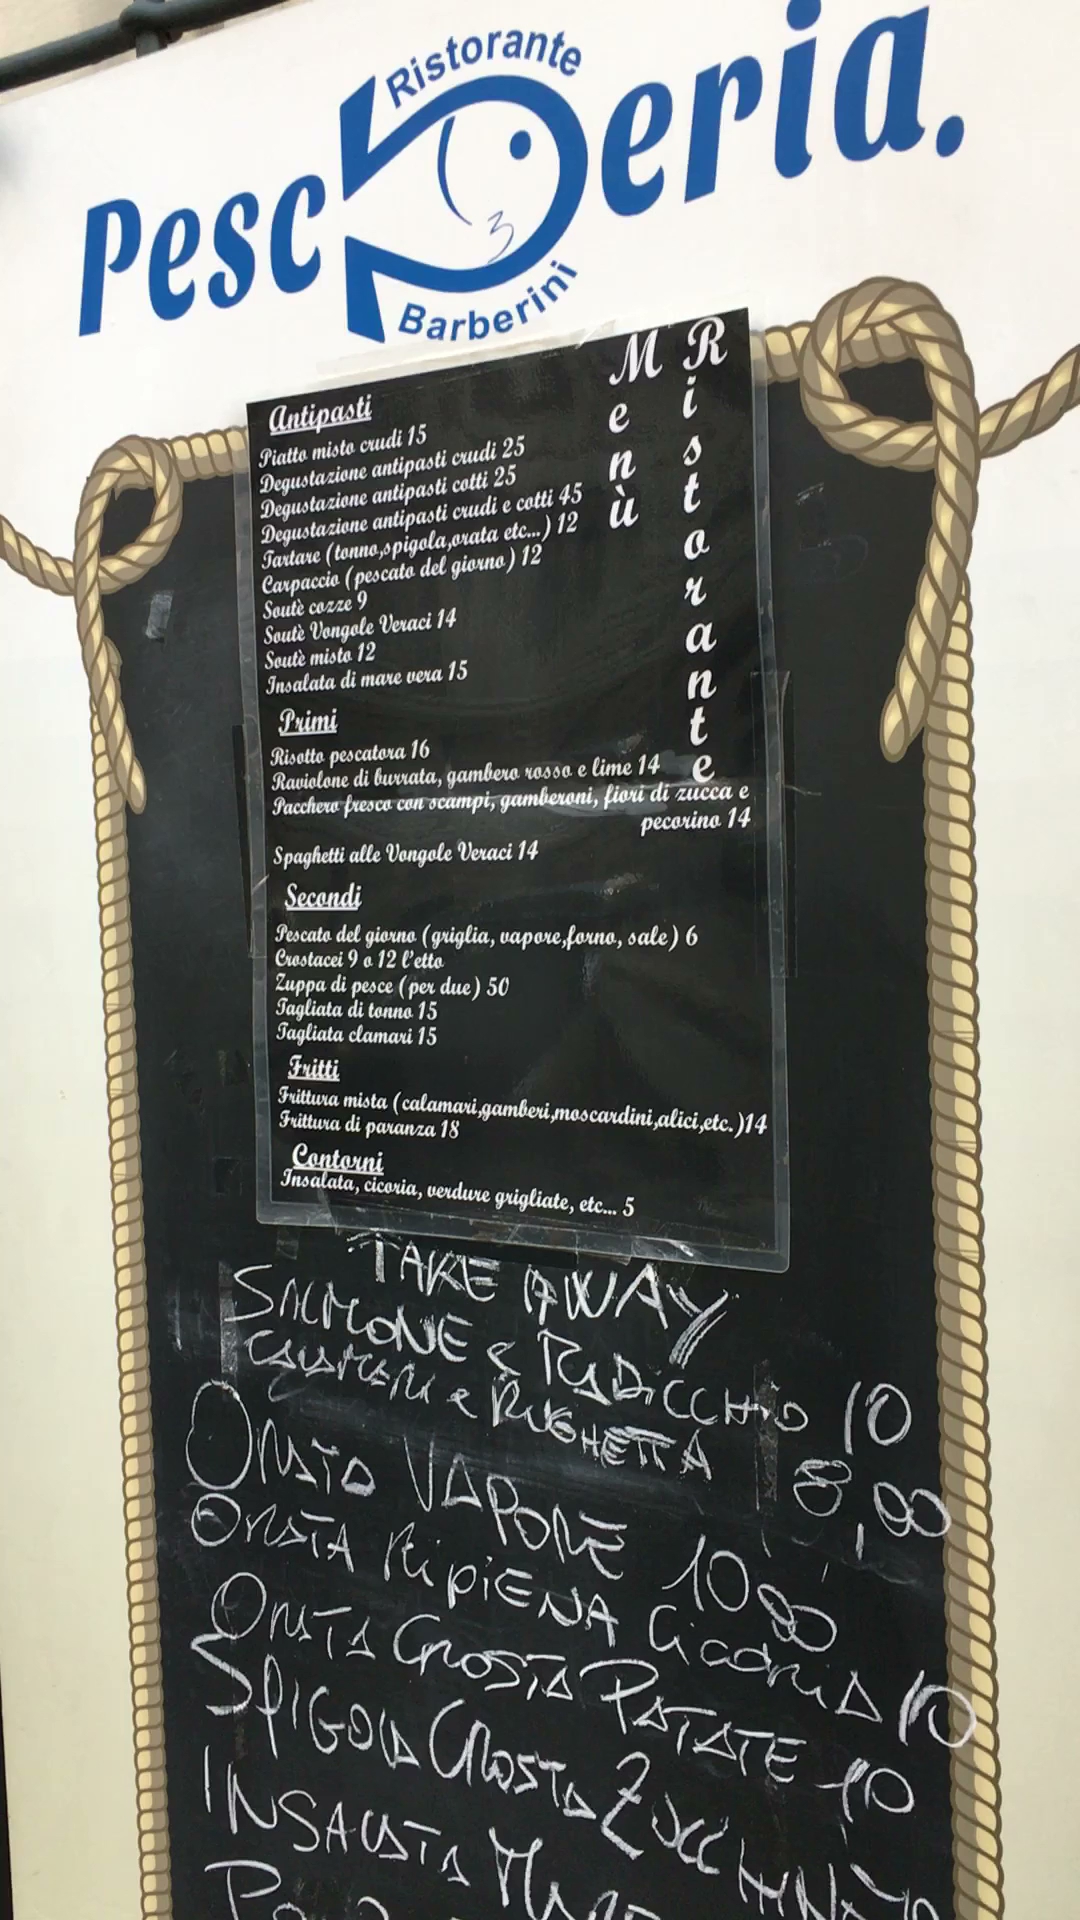 Ristorante
Pescheria.
Barberini
Menù
Ristorante
Antipasti
Piatto misto crudi 15
Degustazione antipasti crudi 25
Degustazione antipasti cotti 25
Degustazione antipasti crudi e cotti 45
Tartare (tonno,spigola,orata etc...) 12
Carpaccio (pescato del giorno) 12
Soutè cozze 9
Soutè Vongole Veraci 14
Soutè misto 12
Insalata di mare vera 15
Primi
Risotto pescatora 16
Raviolone di burrata, gambero rosso e lime 14
Pacchero fresco con scampi, gamberoni, fiori di zucca e
pecorino 14
Spaghetti alle Vongole Veraci 14
Secondi
Pescato del giorno (griglia, vapore,forno, sale) 6
Crostacei 9 o 12 l'etto
Zuppa di pesce (per due) 50
Tagliata di tonno 15
Tagliata clamari 15
Fritti
Frittura mista (calamari,gamberi,moscardini,alici,etc.)14
Frittura di paranza 18
Contorni
Insalata, cicoria, verdure grigliate, etc... 5
TAKE AWAY
SALMONE e RADICCHIO 10
CALAMARI e RUGHETTA 8,00
ORATA VAPORE 10 00
ORATA RipiENA Cicoria 10
ORATA CROSTA PATATE 10
SPIGOLA CROSTA ZUCCHINA 10
INSALATA